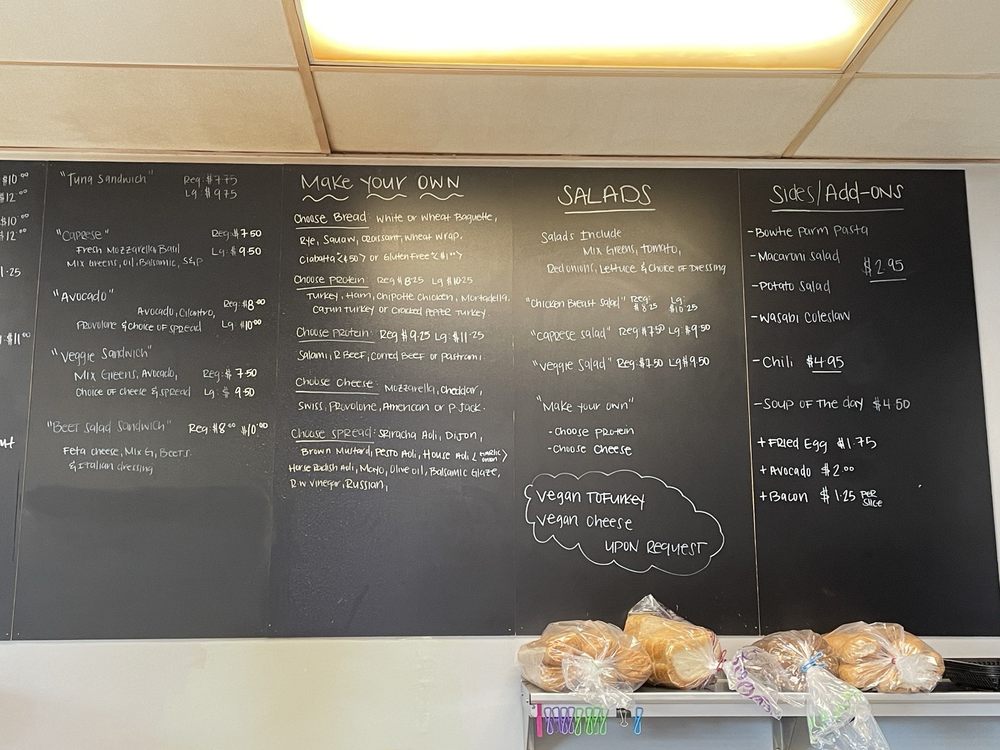 $10.00
$12.00
$10.00
$12.00
"Tuna Sandwich" Reg: $7.75
Lg: $9.75
"Caprese" Reg: $7.50
Fresh Mozzarella, Basil Lg: $9.50
Mix Greens, Oil, Balsamic, S&P
"Avocado"
Reg: $8.00
Avocado, Cilantro,
Provolone & choice of spread Lg $10.00
"Veggie Sandwich"
Mix Greens, Avocado, Reg: $7.50
Choice of cheese & spread Lg: $9.50
"Beet Salad Sandwich" Reg: $8.00 $10.00
Feta cheese, Mix G, Beets
& Italian dressing
Make Your Own
Choose Bread: White or Wheat Baguette,
Rye, Squaw, Croissant, Wheat Wrap,
Ciabatta <$.50> or Gluten Free <$1.00>
Choose Protein: Reg $8.25 Lg $10.25
Turkey, Ham, Chipotle Chicken, Mortadella,
Cajun Turkey or Cracked Pepper Turkey.
Choose Protein: Reg $9.25 Lg: $11.25
Salami, R.Beef, Corned Beef or Pastrami.
Choose Cheese: Mozzarella, Cheddar,
Swiss, Provolone, American or P.Jack.
Choose Spread: Sriracha Aoli, Dijon,
Brown Mustard, Pesto Aoli, House Aoli <Garlic onion>
Horse Radish Aoli, Mayo, Olive oil, Balsamic Glaze,
R.W Vinegar, Russian,
SALADS
Salads Include
Mix Greens, Tomato,
Red onions, Lettuce & Choice of Dressing
"Chicken Breast Salad" Reg: $8.25 Lg: $10.25
"Caprese Salad" Reg $7.50 Lg: $9.50
"Veggie Salad" Reg: $7.50 Lg $9.50
"Make your own"
-Choose Protein
-Choose Cheese
Vegan Tofurkey
Vegan Cheese
UPON REQUEST
Sides/Add-ons
-Bowtie Parm Pasta
-Macaroni Salad
$2.95
-Potato Salad
-Wasabi Coleslaw
-Chili $4.95
-Soup of the day $4.50
+Fried Egg $1.75
+Avocado $2.00
+Bacon $1.25 PER SLICE